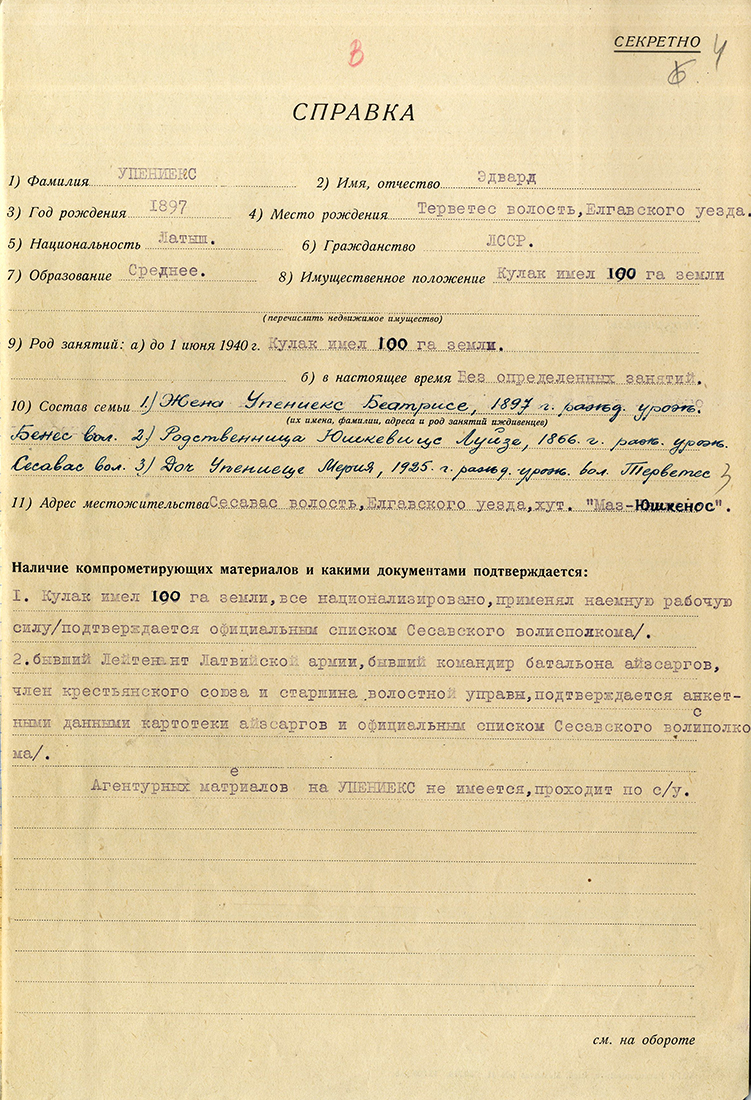 СЕКРЕТНО 4
В
СПРАВКА
1) Фамилия УПЕНИЕКС 2) Имя, отчество Эдвард
3) Год рождения 1897 4) Место рождения Терветес волость, Елгавского уезда.
5) Национальность Латыш. 6) Гражданство ЛССР.
7) Образование Среднее. 8) Имущественное положение Кулак имел 100 га земли
(перечислить недвижимое имущество)
9) Род занятий: а) до 1 июня 1940 г. Кулак имел 100 га земли.
б) в настоящее время Без определенных занятий.
10) Состав семьи 1.) Жена Упениекс Беатрисе, 1897 г. рожд. урож.
(их имена, фамилии, адреса и род занятий иждивенцев)
Бенес вол. 2) Родственница Юшкевице Луизе, 1866. г. рож. урож.
Сесавас вол. 3) Доч Упениеце Мерия, 1925. г. рожд. урож. вол. Терветес
11) Адрес местожительства Сесавас волость, Елгавского уезда, хут. "Маз-Юшкенос".
Наличие компрометирующих материалов и какими документами подтверждается:
I. Кулак имел 100 га земли, все национализировано, применял наемную рабочую
силу/подтверждается официальным списком Сесавского волисполкома/.
2. бывший Лейтенант Латвийской армии, бывший командир батальона айзсаргов,
член крестьянского союза и старшина волостной управы, подтверждается анкет-
ными данными картотеки айзсаргов и официальным списком Сесавского волисполко
ма/.
Агентурных материалов на УПЕНИЕКС не имеется, проходит по с/у.
см. на обороте